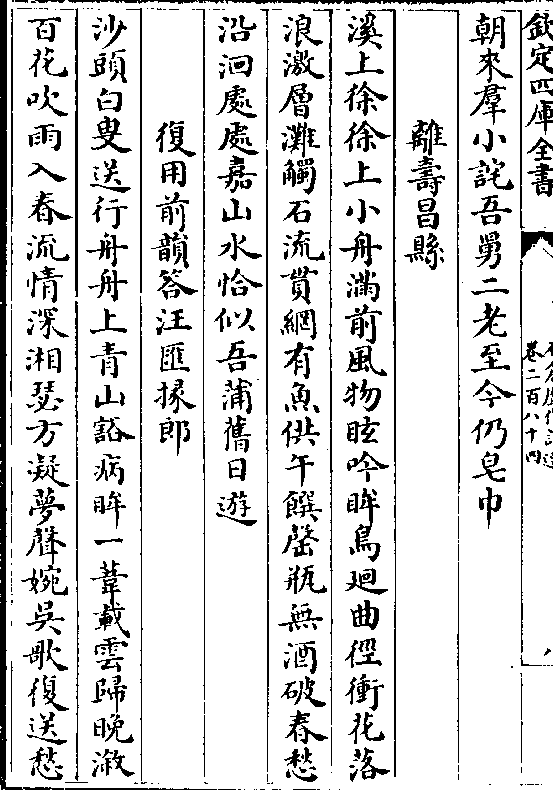 欽定四庫全書
卷二百八十四
八
朝來羣小詫吾舅二老至今仍皂巾
離壽昌縣
溪上徐徐上小舟滿前風物眩吟眸鳥廻曲徑衝花落
浪激層灘觸石流貰網有魚供午饌罄瓶無酒破春愁
沿洄處處嘉山水恰似吾蒲舊日遊
復用前韻答汪匯掾郎
沙頭白叟送行舟舟上青山豁病眸一葦載雲歸晚漵
百花吹雨入春流情深湘瑟方凝夢聲婉吳歌復送愁